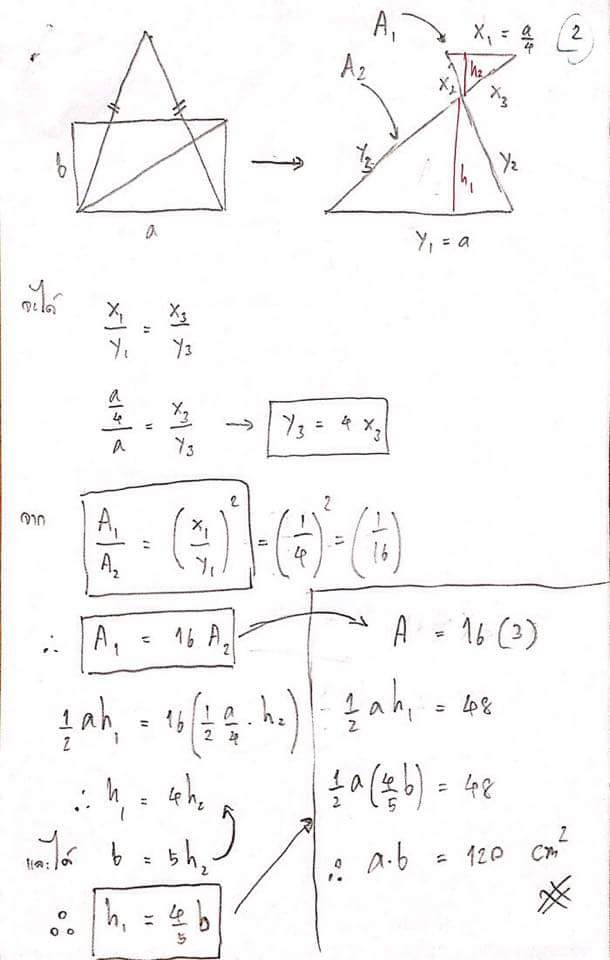 2
A₁
x₁ = a/4
A₂
h₂
x₂
x₃
b
y₃
h₁
y₂
a
y₁ = a
จะได้
x₁/y₁ = x₃/y₃
(a/4)/a = x₃/y₃ → y₃ = 4 x₃
จาก
A₁/A₂ = (x₁/y₁)² = (1/4)² = (1/16)
∴ A₁ = 16 A₂
1/2 ah₁ = 16(1/2 a/4 · h₂)
∴ h₁ = 4h₂
และได้ b = 5h₂
∴ h₁ = 4/5 b
A = 16(3)
1/2 a h₁ = 48
1/2 a(4/5 b) = 48
∴ a·b = 120 cm²